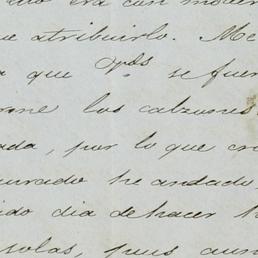 era con
ue atribuirlo. Me
a que Vds se fuer
rme los calzones
ada, por lo que cr
urado he andado,
ido dia de hacer
solas, pues aun